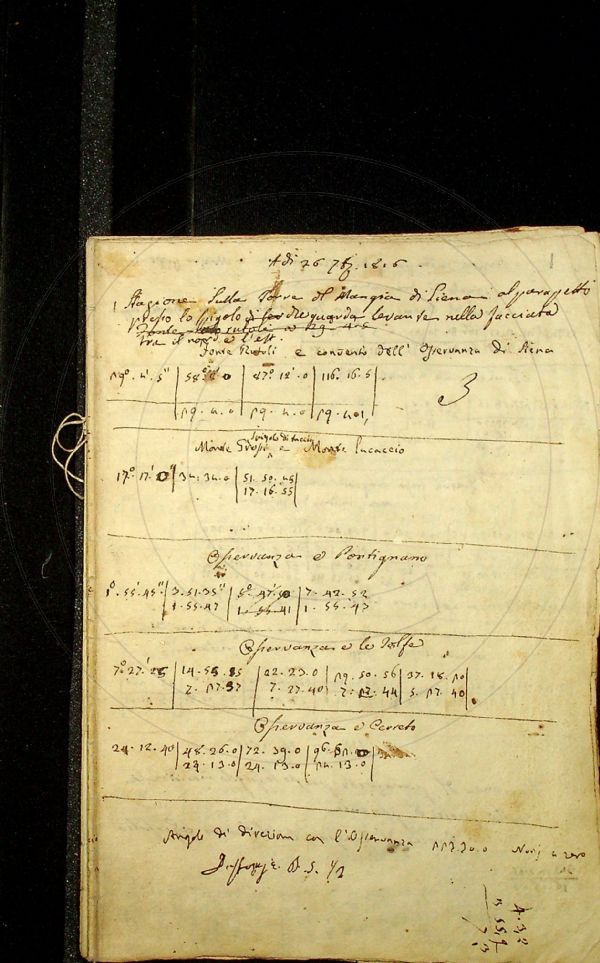 Adi 26 7b. 1816
1 Stazione Sulla Torre del Mangia di Siena al parapetto
presso lo spigolo che riguarda levante nella facciata
tra il nord e l'est.
Fonte Rutoli e convento dell' Osservanza di Siena
29°. 4'. 5" | 58° 8' 0 | 87° 12'. 0 | 116. 16. 5
29. 4. 0 | 29. 4. 0 | 29. 4. 01
3
Monte e Monte Lucaccio
17°. 17'. 0" | 34. 34. 0 | 51. 50. 45
17. 16. 55
Osservanza e Pontignano
1°. 55'. 45" | 3. 51. 35" | 5°. 47'. 50 | 7. 42. 52
1. 55. 47 | 1. 55. 41 | 1. 55. 43
Osservanza e le Tolfe
7° 27' 28 | 14. 55. 35 | 22. 23. 0 | 29. 50. 56 | 37. 18. 20
7. 27. 37 | 7. 27. 40 | 7. 27. 44 | 27. 40
Osservanza e Cerreto
24. 12. 40 | 48. 26. 0 | 72. 39. 0 | 96.
24. 13. 0 | 24. 13. 0 | 24. 13. 0
Angolo di direzione con l'Osservanza 30. 0 a zero